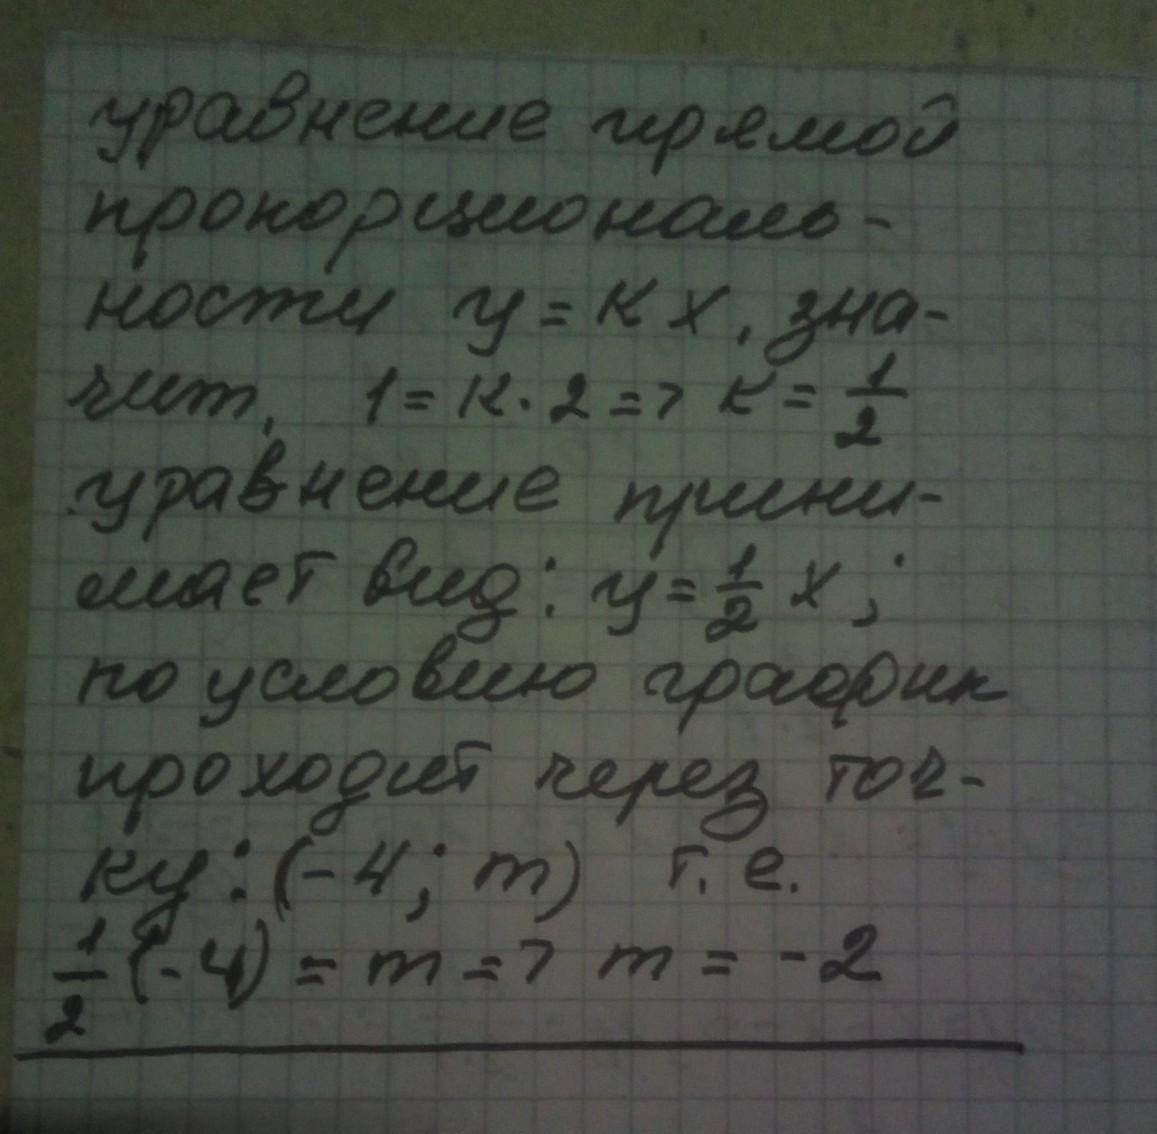 уравнение прямой
пропорциональ-
ности y = кx, зна-
чит, 1 = к · 2 => к = 1/2
уравнение прини-
мает вид: y = 1/2 x;
по условию график
проходит через точ-
ку: (-4; m) т. е.
1/2 (-4) = m => m = -2